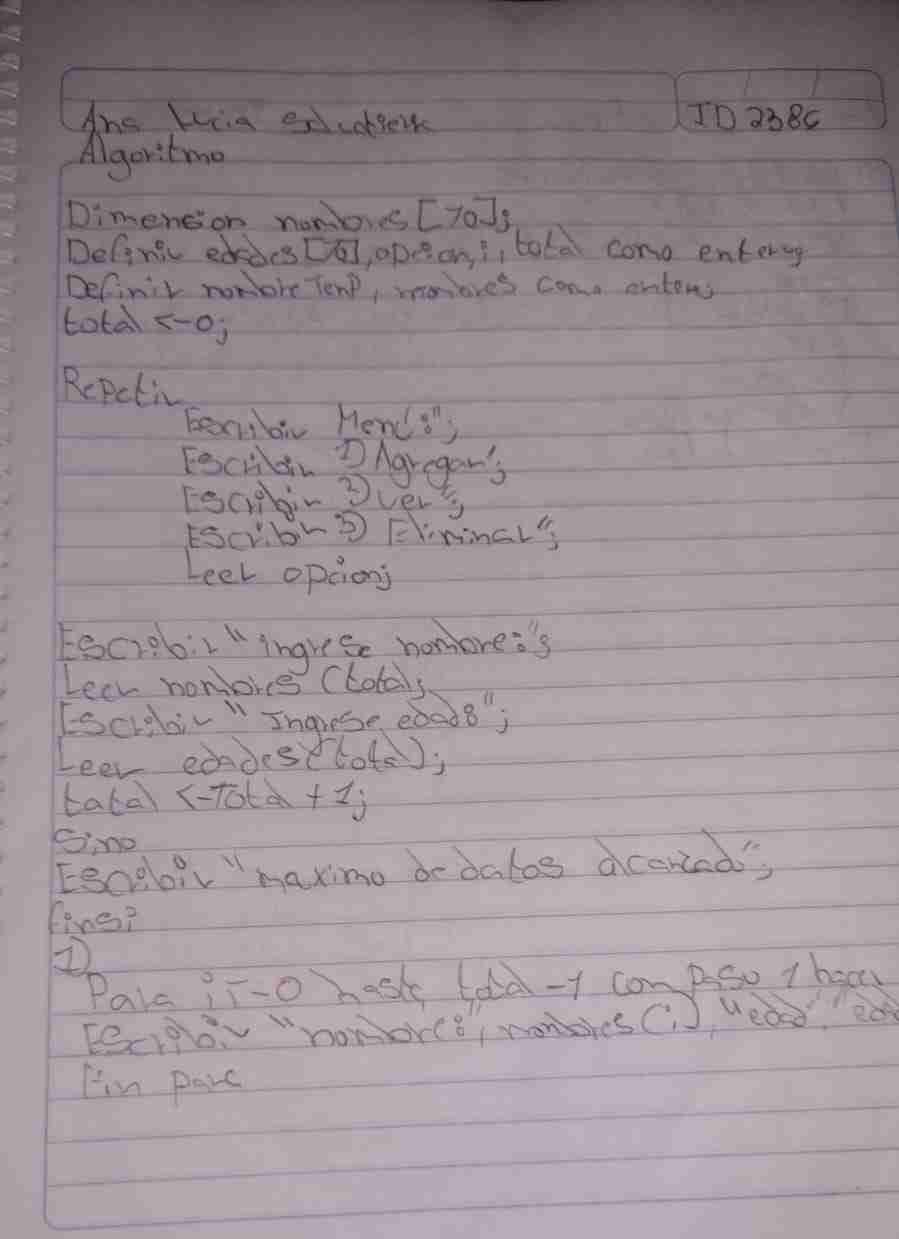 Ana Lucia
ID 2386
Algoritmo
Dimension nombres [10];
Definir edades [10], opcion, i, total como enteros
Definir nombreTemp, nombres como entero;
total <-0;
Repetir
Escribir Menu:";
Escribir 1) Agregar";
Escribir 2) ver";
Escribir 3) Eliminar";
Leer opcion;
Escribir "ingrese nombre:";
Leer nombres (total;
Escribir "Ingrese edad:";
Leer edades (total);
total <-Total + 1;
Sino
Escribir "maximo de datos alcanzad";
finsi
1)
Para i <-0 hasta total -1 con paso 1 hacer
Escribir "nombre:", nombres (i), "edad",
Fin para